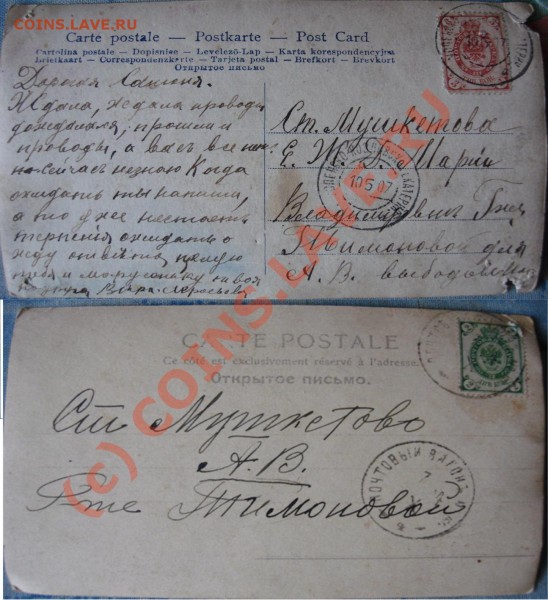 COINS.LAVE.RU
Carte postale – Postkarte – Post Card
Cartolina postale – Dopisnice – Levelező-Lap – Karta korespondencyjna
Briefkaart – Correspondenzkarte – Tarjeta postal – Brefkort – Brevkort
Открытое письмо
Дорогая
Ждала, ждала проводы
дождалась, прошли и
проводы, а вас все нет
Сейчас незнаю Когда
ожидать ты напиши,
а то уже нестаетъ
терпения ожидать
жду целую
тебя и
Вера
Ст. Мушкетова
Е. Ж. Д. Марии
Владимировне Гже
Тимоновой для
А. В.
10 5 07
CARTE POSTALE
Ce côté est exclusivement réservé à l'adresse
Открытое письмо.
Ст Мушкетово
А. В.
Гже Тимоновой
ПОЧТОВЫЙ ВАГОНЪ
(c) COINS.LAVE.RU